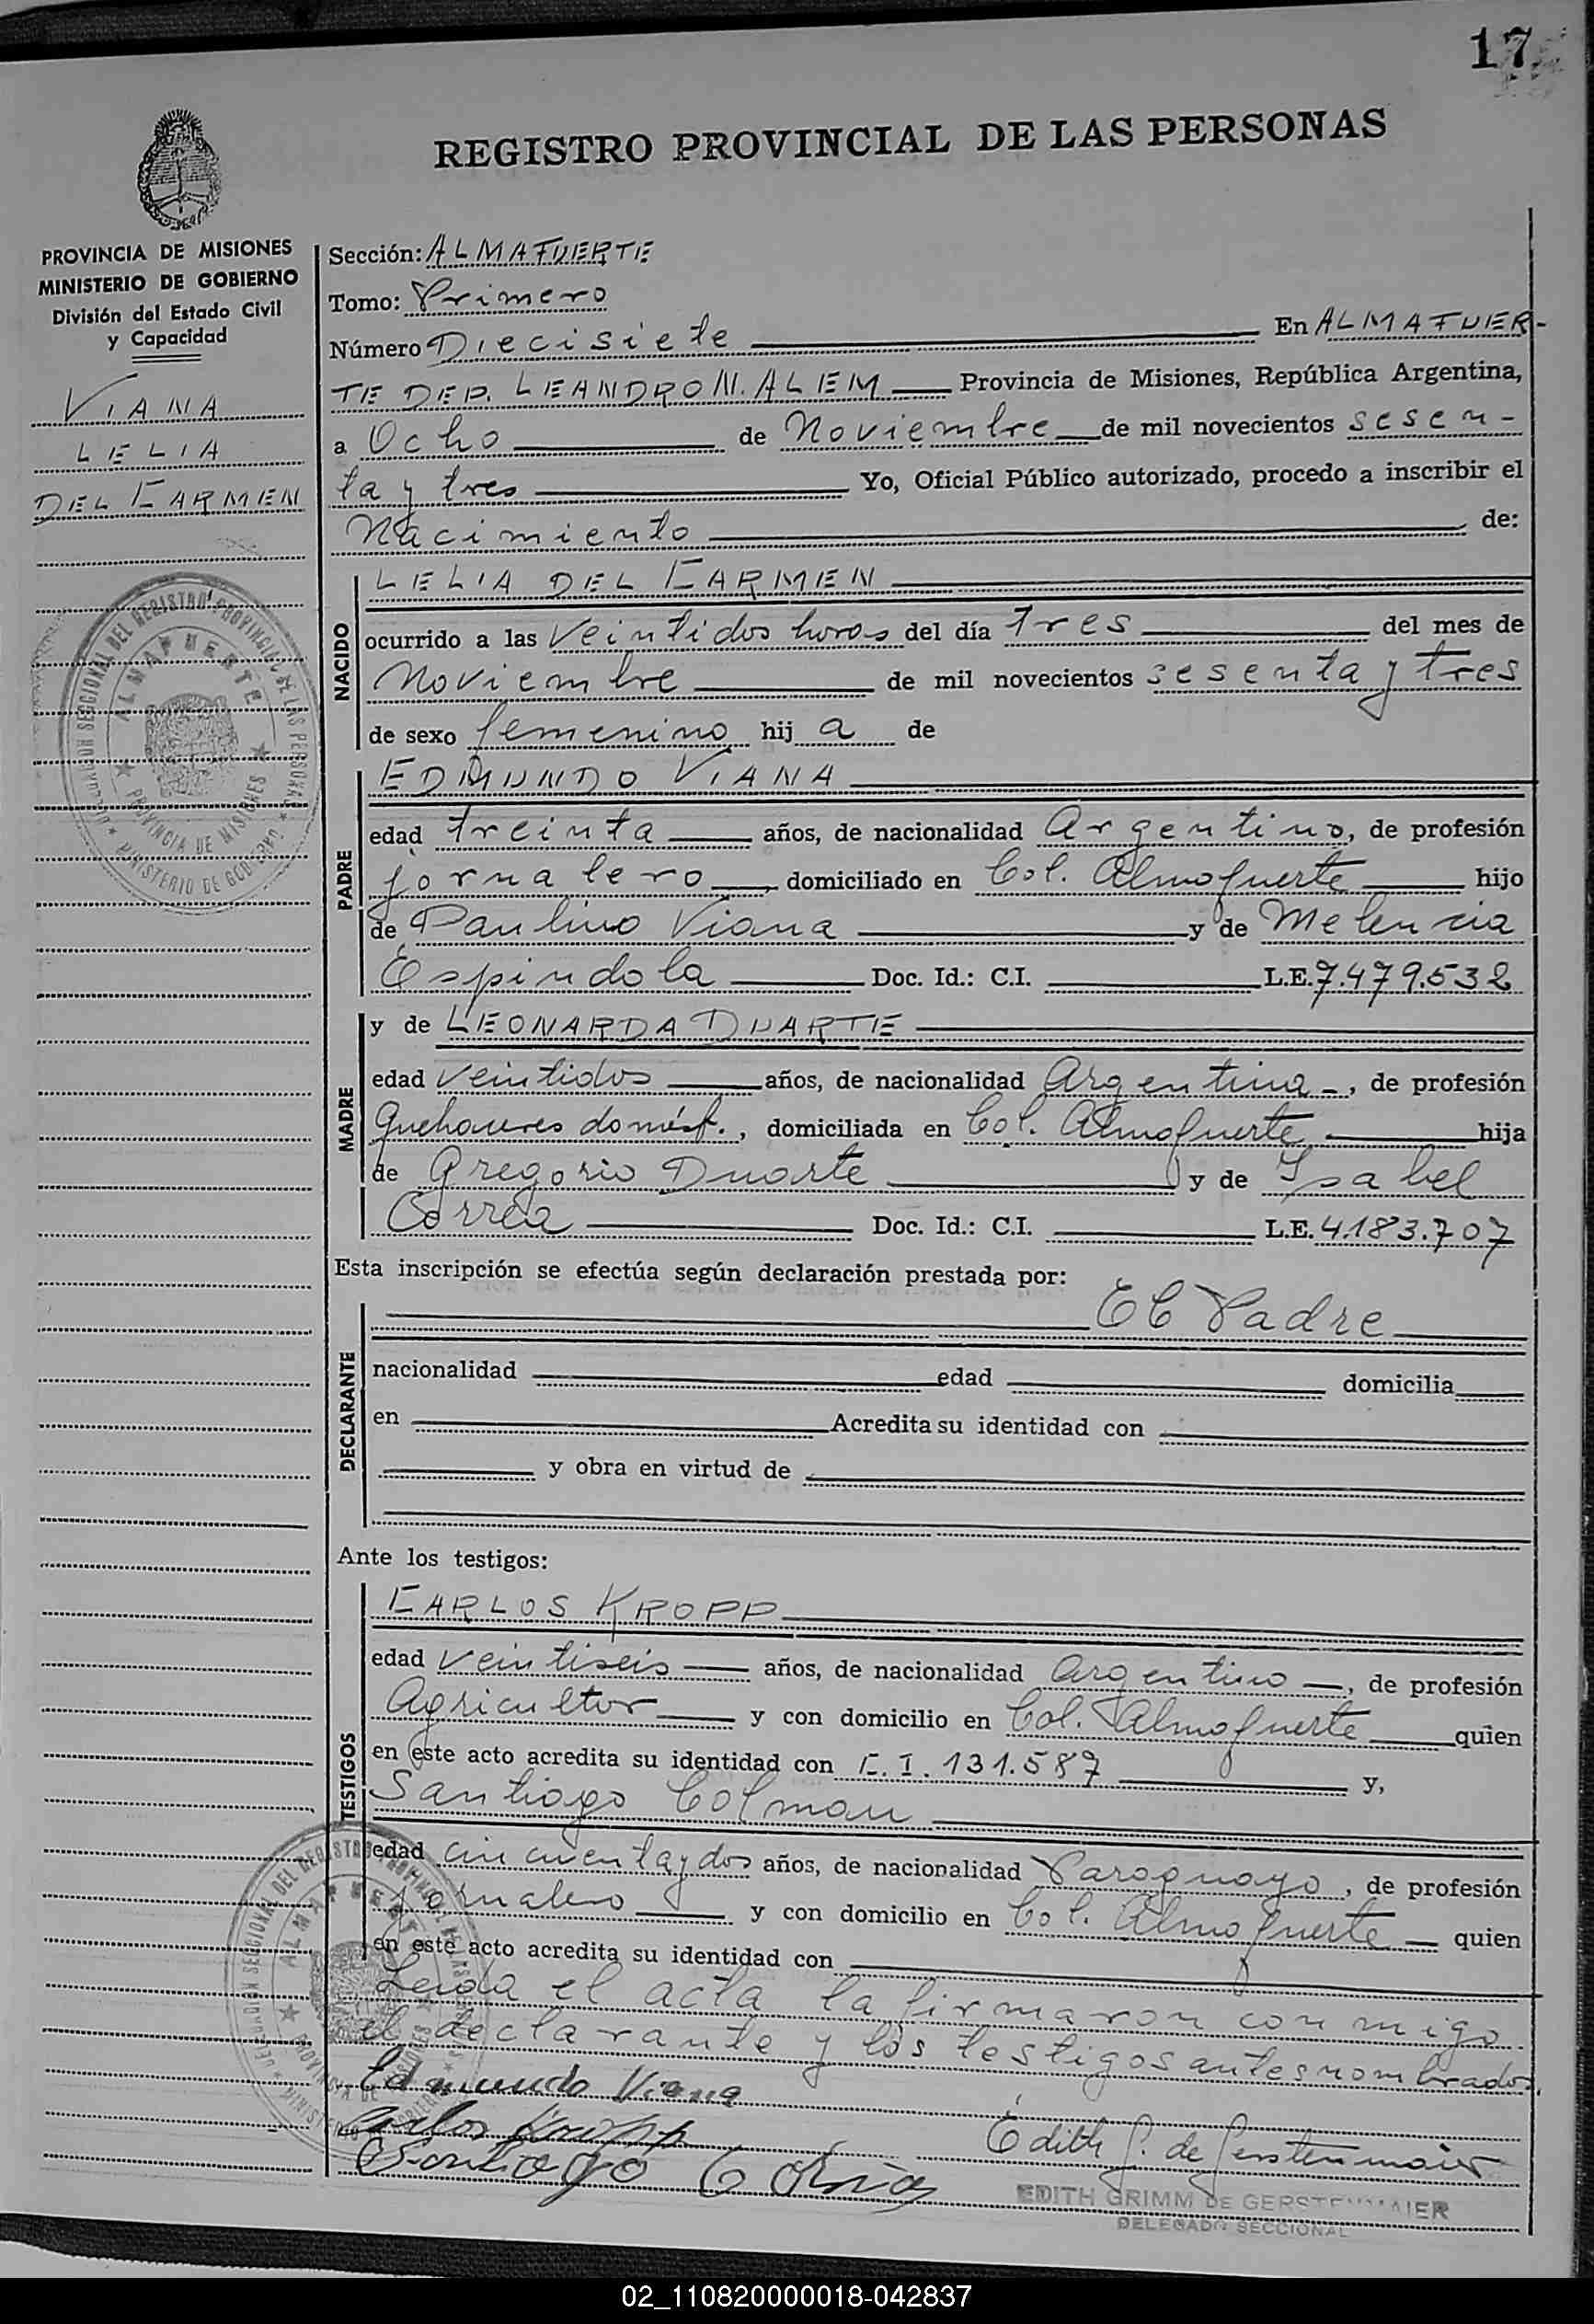 17
REGISTRO PROVINCIAL DE LAS PERSONAS
PROVINCIA DE MISIONES
MINISTERIO DE GOBIERNO
División del Estado Civil
y Capacidad
VIANA
LELIA
DEL CARMEN
Sección: ALMAFUERTE
Tomo: Primero
Número Diecisiete En ALMAFUER-
TE DEP. LEANDRO N. ALEM Provincia de Misiones, República Argentina,
a Ocho de Noviembre de mil novecientos sesen-
ta y tres Yo, Oficial Público autorizado, procedo a inscribir el
Nacimiento de:
NACIDO
LELIA DEL CARMEN
ocurrido a las veintidos horas del día tres del mes de
Noviembre de mil novecientos sesenta y tres
de sexo femenino hij a de
PADRE
EDMUNDO VIANA
edad treinta años, de nacionalidad Argentino, de profesión
jornalero, domiciliado en Col. Almafuerte hijo
de Paulino Viana y de Melencia
Espindola Doc. Id.: C.I. L.E. 7.479.532
MADRE
y de LEONARDA DUARTE
edad veintidos años, de nacionalidad Argentina-, de profesión
Quehaceres domést., domiciliada en Col. Almafuerte hija
de Gregorio Duarte y de Isabel
Correa Doc. Id.: C.I. L.E. 4.183.707
Esta inscripción se efectúa según declaración prestada por:
DECLARANTE
El Padre
nacionalidad edad domicilia
en Acredita su identidad con
y obra en virtud de
Ante los testigos:
TESTIGOS
CARLOS KROPP
edad veintiseis años, de nacionalidad Argentino, de profesión
Agricultor y con domicilio en Col. Almafuerte quien
en este acto acredita su identidad con C.I. 131.587 y,
Santiago Colman
edad cincuenta y dos años, de nacionalidad Paraguayo, de profesión
jornalero y con domicilio en Col. Almafuerte quien
en este acto acredita su identidad con
Leida el acta la firmaron con migo
el declarante y los testigos antes nombrados.
Edmundo Viana
Carlos Kropp
Santiago
Edith G. de Gerstenmaier
EDITH GRIMM DE GERSTENMAIER
DELEGADO SECCIONAL
DELEGACION SECCIONAL DEL REGISTRO PROVINCIAL DE LAS PERSONAS
ALMAFUERTE
PROVINCIA DE MISIONES
MINISTERIO DE GOBIERNO
02_110820000018-042837